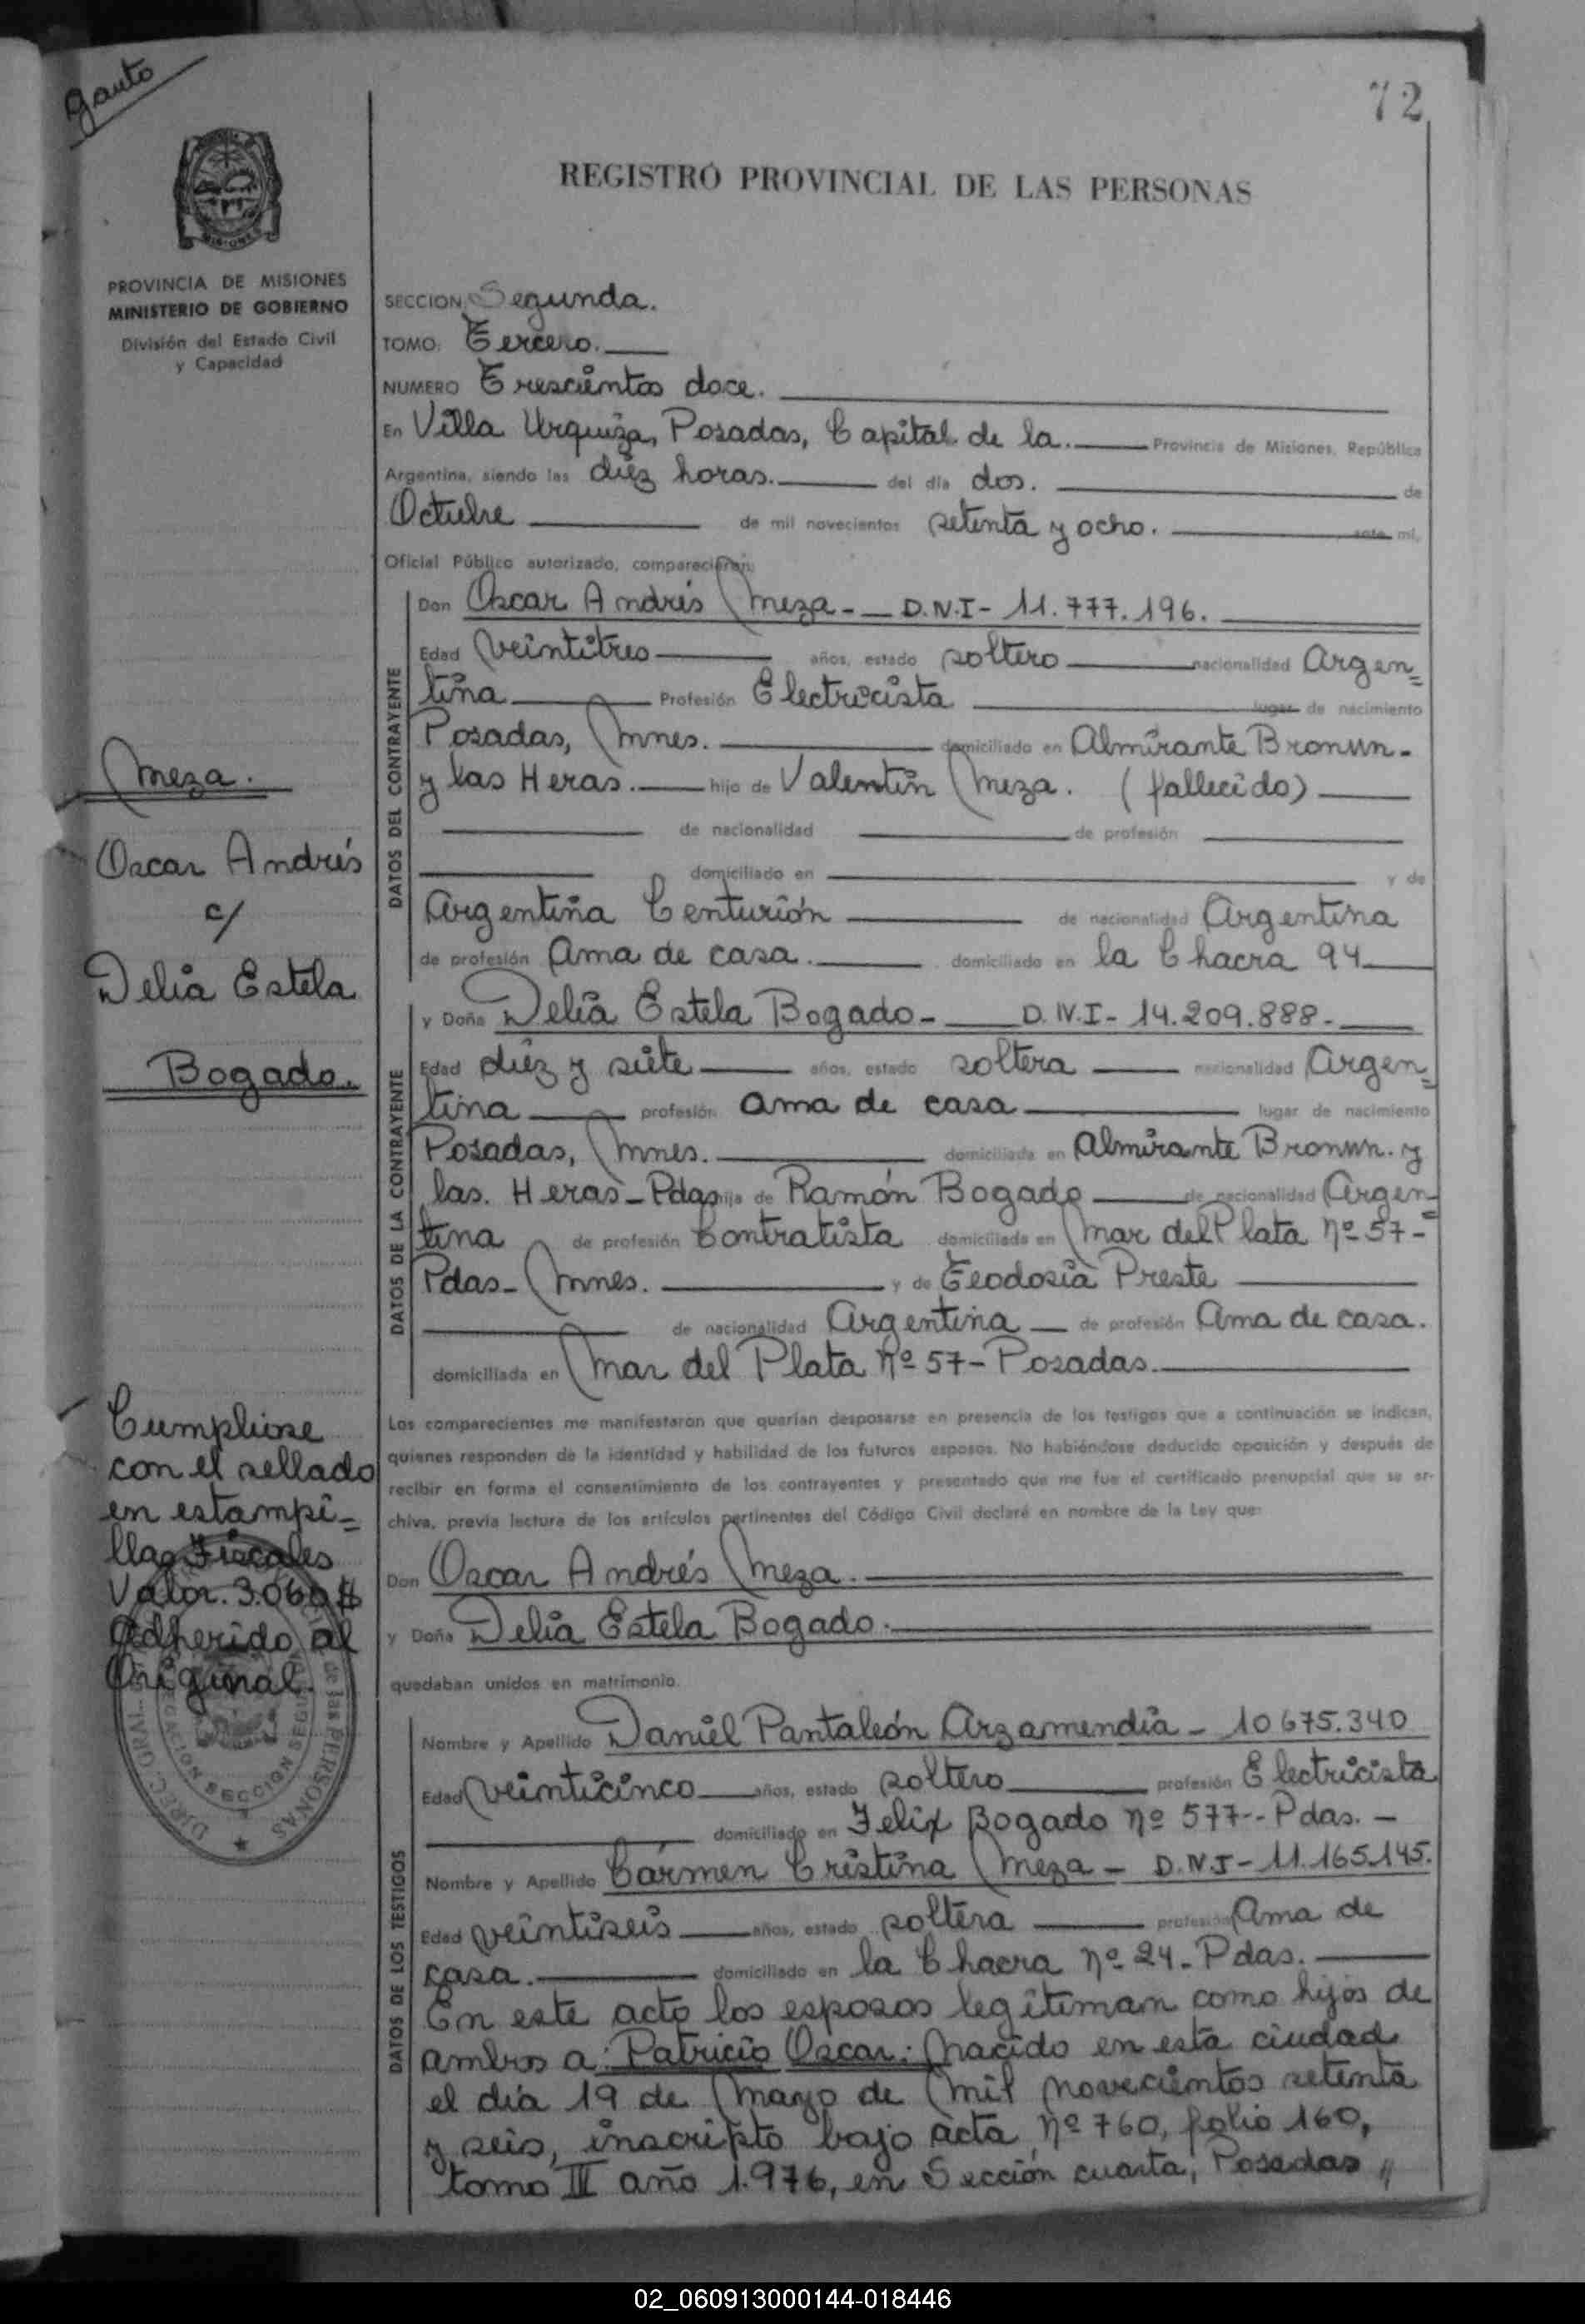 Gauto
72
MISIONES
REGISTRO PROVINCIAL DE LAS PERSONAS
PROVINCIA DE MISIONES
MINISTERIO DE GOBIERNO
División del Estado Civil
y Capacidad
SECCION Segunda.
TOMO: Tercero.
NUMERO Trescientos doce.
En Villa Urquiza, Posadas, Capital de la. Provincia de Misiones, República
Argentina, siendo las diéz horas. del día dos. de
Octubre de mil novecientos setenta y ocho. ante mi,
Oficial Público autorizado, comparecieron:
DATOS DEL CONTRAYENTE
Don Oscar Andrés Meza - D.N.I - 11.777.196.
Edad Veintitres años, estado soltero nacionalidad Argen=
tina Profesión Electricista lugar de nacimiento
Posadas, Mnes. domiciliado en Almirante Bronun-
y las Heras. hijo de Valentin Meza. (fallecido)
de nacionalidad de profesión
domiciliado en y de
Argentina Centurión de nacionalidad Argentina
de profesión Ama de casa. domiciliado en la Chacra 94
Meza.
Oscar Andrés
c/
Delia Estela
Bogado.
DATOS DE LA CONTRAYENTE
y Doña Delia Estela Bogado - D.N.I - 14.209.888-
Edad diéz y siete años, estado soltera nacionalidad Argen=
tina profesión Ama de casa lugar de nacimiento
Posadas, Mnes. domiciliada en Almirante Bronun. y
las. Heras - Pdas hija de Ramón Bogado de nacionalidad Argen=
tina de profesión Contratista domiciliado en Mar del Plata Nº 57-
Pdas- Mnes. y de Teodosia Preste
de nacionalidad Argentina de profesión Ama de casa.
domiciliada en Mar del Plata Nº 57 - Posadas.
Los comparecientes me manifestaron que querían desposarse en presencia de los testigos que a continuación se indican,
quienes responden de la identidad y habilidad de los futuros esposos. No habiéndose deducido oposición y después de
recibir en forma el consentimiento de los contrayentes y presentado que me fue el certificado prenupcial que se ar-
chiva, previa lectura de los artículos pertinentes del Código Civil declaré en nombre de la Ley que:
Don Oscar Andrés Meza.
y Doña Delia Estela Bogado.
quedaban unidos en matrimonio.
Cumpliose
con el sellado
en estampi=
llas Fiscales
Valor. 3.060 $
Adherido al
Original.
DIREC. GRAL. de las PERSONAS
SECCION
DATOS DE LOS TESTIGOS
Nombre y Apellido Daniel Pantaleón Arzamendia - 10675.340
Edad Veinticinco años, estado soltero profesión Electricista
domiciliado en Felix Bogado Nº 577-- Pdas. -
Nombre y Apellido Cármen Cristina Meza - D.N.I - 11.165.145.
Edad veintiseis años, estado soltera profesión Ama de
casa. domiciliado en la Chacra Nº 24- Pdas.
En este acto los esposos legitiman como hijos de
ambos a: Patricio Oscar: Nacido en esta ciudad
el día 19 de Mayo de Mil Novecientos setenta
y seis, inscripto bajo acta Nº 760, folio 160,
tomo III año 1.976, en Sección cuarta, Posadas,,
02_060913000144-018446